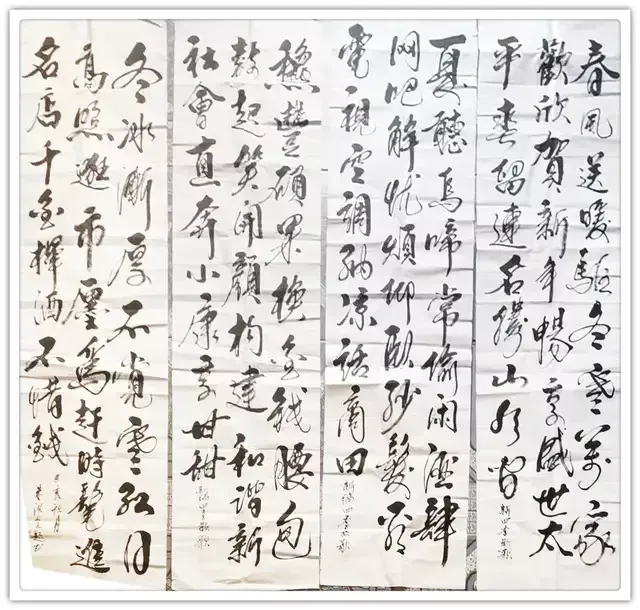 春風送暖驅冬寒萬家
歡欣賀新年暢享盛世太
平春留連名勝山水間
新四季新歌
夏聽鳥啼常偷閑酒肆
网吧解忧煩仰臥紗发看
電視空調納凉話商田
新編四季新歌
穐豐碩果換金錢腰包
鼓起笑開顏构建和諧新
社會直奔小康享甘甜
編四季新歌
冬冰漸厚不覺寒紅日
高照逛市廛為赶時髦進
名店千金擇酒不惜錢
丁亥秋月